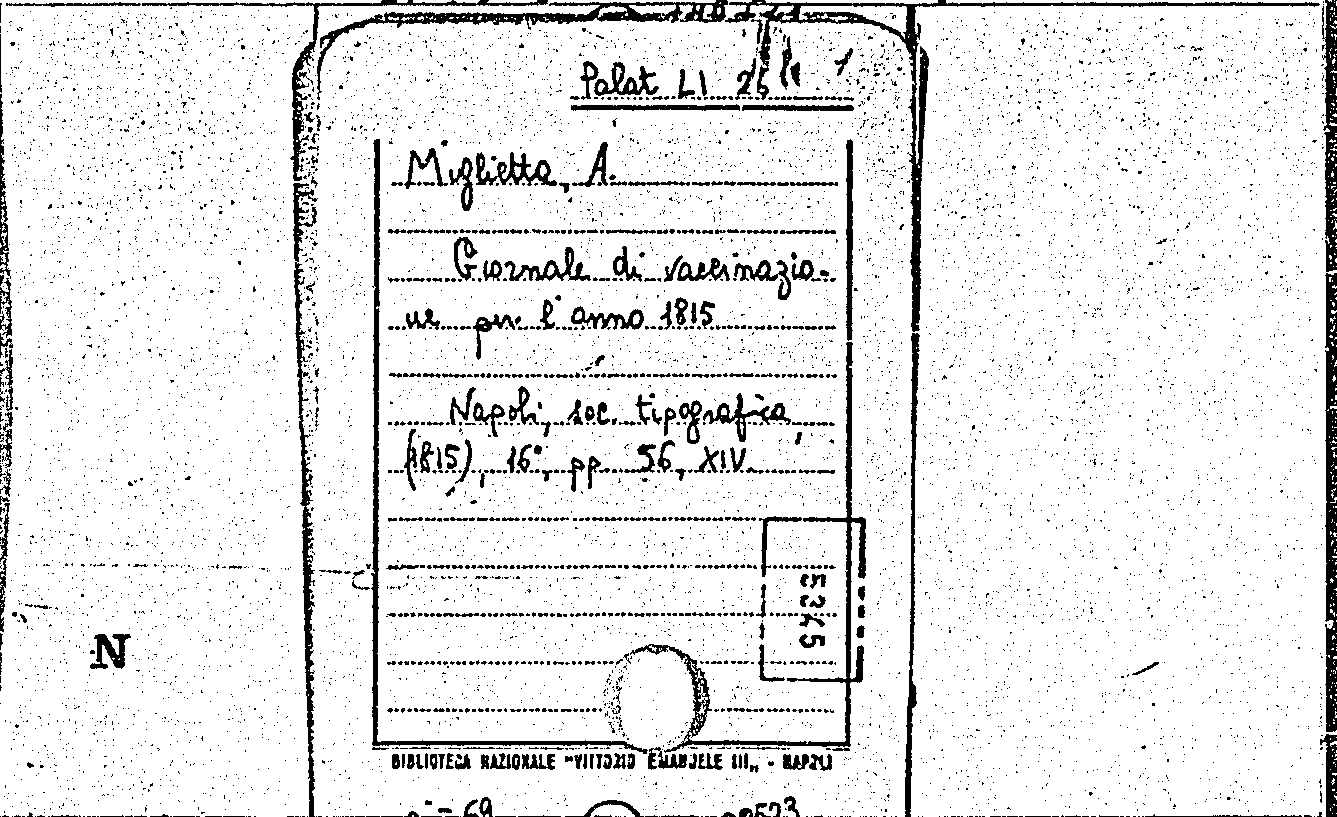 Palat LI 25
Miglietta, A.
Giornale di vaccinazio-
ne per l'anno 1815
Napoli, soc. tipografica,
(1815), 16°, pp. 56, XIV.
5345
N
BIBLIOTECA NAZIONALE "VITTORIO EMANUELE III„ - NAPOLI